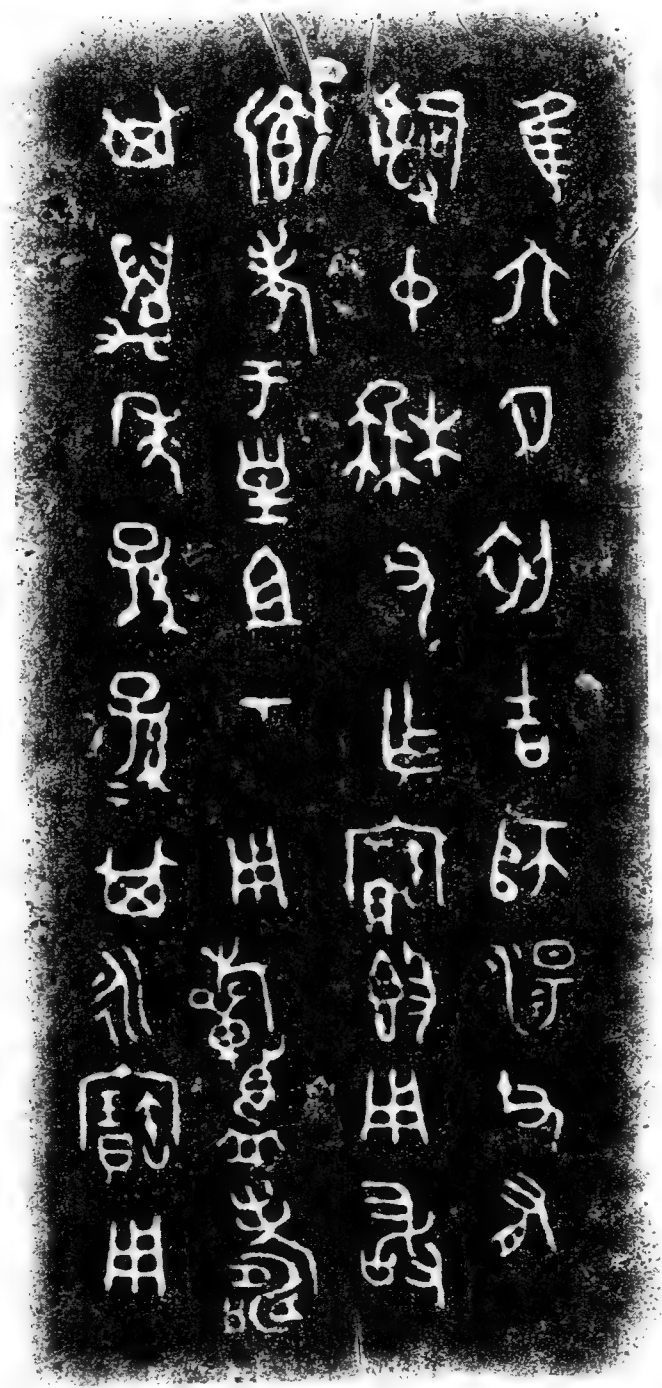 隹六月初吉師湯父有
司中枏父乍寶𣪘用敢
鄉孝于皇且丂用祈眉壽
其萬年子孫其永寶用